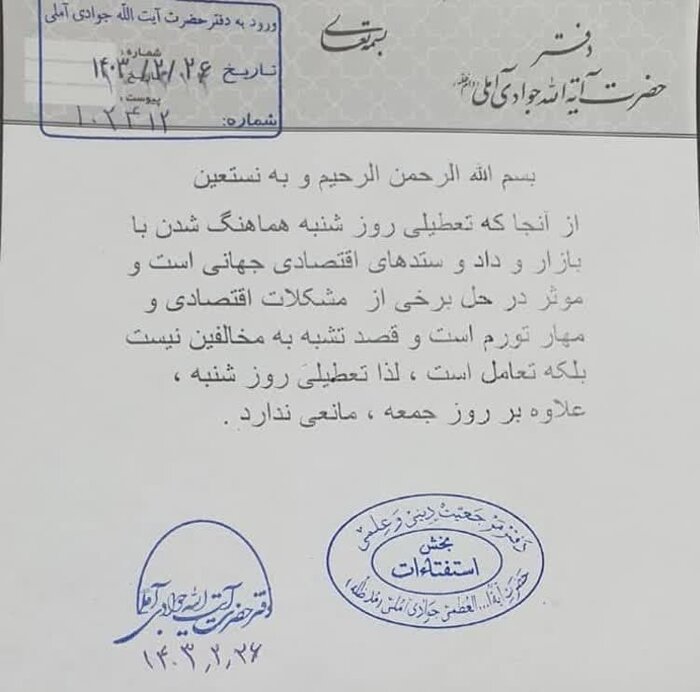 بسمه تعالی
دفتر
حضرت آیة الله جوادی آملی
ورود به دفتر حضرت آیت الله جوادی آملی
شماره:
تاریخ ۱۴۰۳/۲/۲۶
پیوست:
شماره: ۱۰۲۴۱۲
بسم الله الرحمن الرحیم و به نستعین
از آنجا که تعطیلی روز شنبه هماهنگ شدن با
بازار و داد و ستدهای اقتصادی جهانی است و
موثر در حل برخی از مشکلات اقتصادی و
مهار تورم است و قصد تشبه به مخالفین نیست
بلکه تعامل است ، لذا تعطیلی روز شنبه ،
علاوه بر روز جمعه ، مانعی ندارد .
دفتر مرجعیت دینی و علمی
بخش
استفتاءات
حضرت آیة ا... العظمی جوادی آملی (مدظله)
دفتر حضرت آیت الله جوادی آملی
۱۴۰۳,۲,۲۶